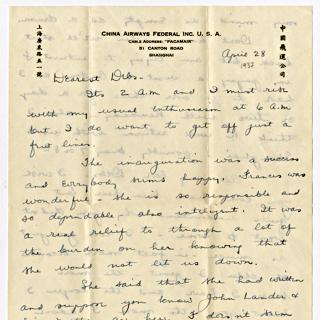 CHINA AIRWAYS FEDERAL INC. U. S. A.
CABLE ADDRESS: "PACAMAIR"
51 CANTON ROAD
SHANGHAI
上海廣東路五一號
中國飛運公司
April 28
1937
Dearest Debs -
Its 2 A M and I must risk
with my usual enthusiasm at 6 A M
but I do want to get off just a
few lines.
The inauguration was a success
and everybody seems happy. Francis was
wonderful - she is so responsible and
so dependable - also intelligent. It was
a real relief to through a lot of
the burden on her knowing that
she would not let us down.
She said that she had written
and suppose you know John Lander &
are here. I doesn't seem